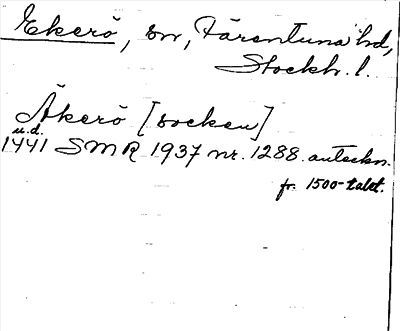 Ekerö, sn, Färentuna hd,
Stockh. l.
Åkerö [socken]
u.d.
1441 SMR 1937 nr. 1288. anteckn.
fr. 1500-talet.